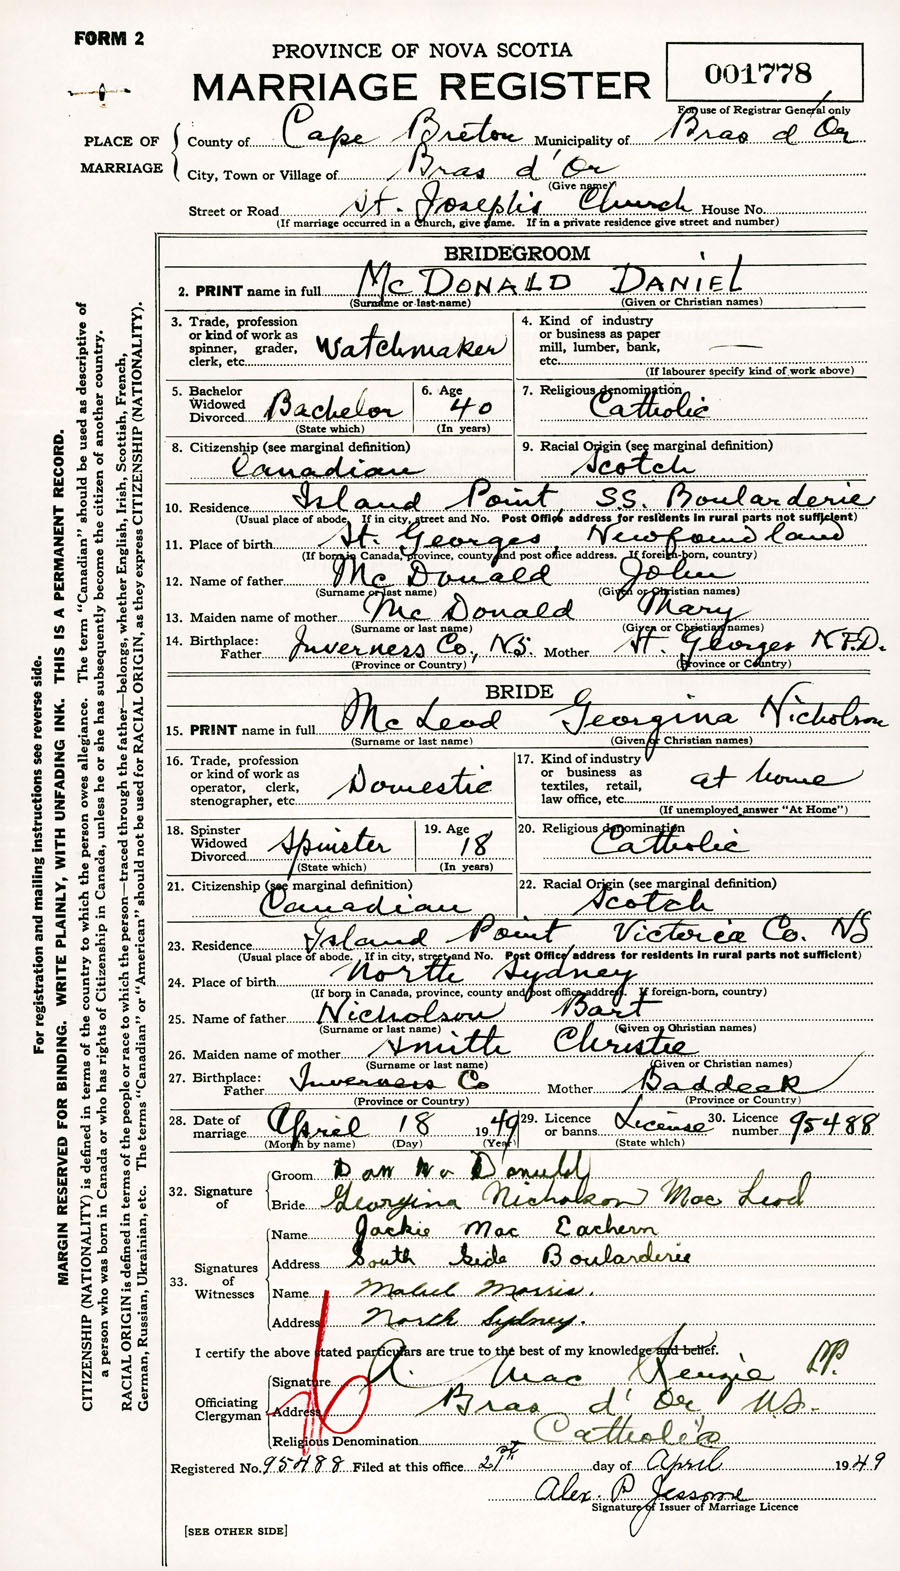 FORM 2
PROVINCE OF NOVA SCOTIA
MARRIAGE REGISTER
001778
For use of Registrar General only
PLACE OF MARRIAGE
County of Cape Breton Municipality of Bras d'Or
City, Town or Village of Bras d'Or
(Give name)
Street or Road St. Joseph's Church House No.
(If marriage occurred in a Church, give name. If in a private residence give street and number)
BRIDEGROOM
2. PRINT name in full McDONALD DANIEL
(Surname or last name) (Given or Christian names)
3. Trade, profession or kind of work as spinner, grader, clerk, etc. Watchmaker
4. Kind of industry or business as paper mill, lumber, bank, etc. —
(If labourer specify kind of work above)
5. Bachelor Widowed Divorced Bachelor
(State which)
6. Age 40
(In years)
7. Religious denomination
Catholic
8. Citizenship (see marginal definition)
Canadian
9. Racial Origin (see marginal definition)
Scotch
10. Residence Island Point S.S. Boularderie
(Usual place of abode. If in city, street and No. Post Office address for residents in rural parts not sufficient)
11. Place of birth St. Georges, Newfoundland
(If born in Canada, province, county and post office address. If foreign-born, country)
12. Name of father McDonald John
(Surname or last name) (Given or Christian names)
13. Maiden name of mother McDonald Mary
(Surname or last name) (Given or Christian names)
14. Birthplace: Father Inverness Co., N.S. Mother St. Georges N.F.D.
(Province or Country) (Province or Country)
BRIDE
15. PRINT name in full McLeod Georgina Nicholson
(Surname or last name) (Given or Christian names)
16. Trade, profession or kind of work as operator, clerk, stenographer, etc. Domestic
17. Kind of industry or business as textiles, retail, law office, etc. at home
(If unemployed answer "At Home")
18. Spinster Widowed Divorced Spinster
(State which)
19. Age 18
(In years)
20. Religious denomination
Catholic
21. Citizenship (see marginal definition)
Canadian
22. Racial Origin (see marginal definition)
Scotch
23. Residence Island Point, Victoria Co. NS
(Usual place of abode. If in city, street and No. Post Office address for residents in rural parts not sufficient)
24. Place of birth North Sydney
(If born in Canada, province, county and post office address. If foreign-born, country)
25. Name of father Nicholson Bart
(Surname or last name) (Given or Christian names)
26. Maiden name of mother Smith Christie
(Surname or last name) (Given or Christian names)
27. Birthplace: Father Inverness Co Mother Baddeck
(Province or Country) (Province or Country)
28. Date of marriage April 18 1949
(Month by name) (Day) (Year)
29. Licence or banns License
(State which)
30. Licence number 95488
32. Signature of
Groom Dan Mc Donald
Bride Georgina Nicholson Mac Leod
33. Signatures of Witnesses
Name Jackie Mac Eachern
Address South Side Boularderie
Name Mabel Morris.
Address North Sydney.
I certify the above stated particulars are true to the best of my knowledge and belief.
Officiating Clergyman
Signature A. Mac Kenzie P.P.
Address Bras d'Or N.S.
Religious Denomination Catholic
Registered No. 95488 Filed at this office 21st day of April 1949
Alex. P. Jessome
Signature of Issuer of Marriage Licence
[SEE OTHER SIDE]
For registration and mailing instructions see reverse side.
MARGIN RESERVED FOR BINDING. WRITE PLAINLY, WITH UNFADING INK. THIS IS A PERMANENT RECORD.
CITIZENSHIP (NATIONALITY) is defined in terms of the country to which the person owes allegiance. The term "Canadian" should be used as descriptive of
a person who was born in Canada or who has rights of Citizenship in Canada, unless he or she has subsequently become the citizen of another country.
RACIAL ORIGIN is defined in terms of the people or race to which the person—traced through the father—belongs, whether English, Irish, Scottish, French,
German, Russian, Ukrainian, etc. The terms "Canadian" or "American" should not be used for RACIAL ORIGIN, as they express CITIZENSHIP (NATIONALITY).